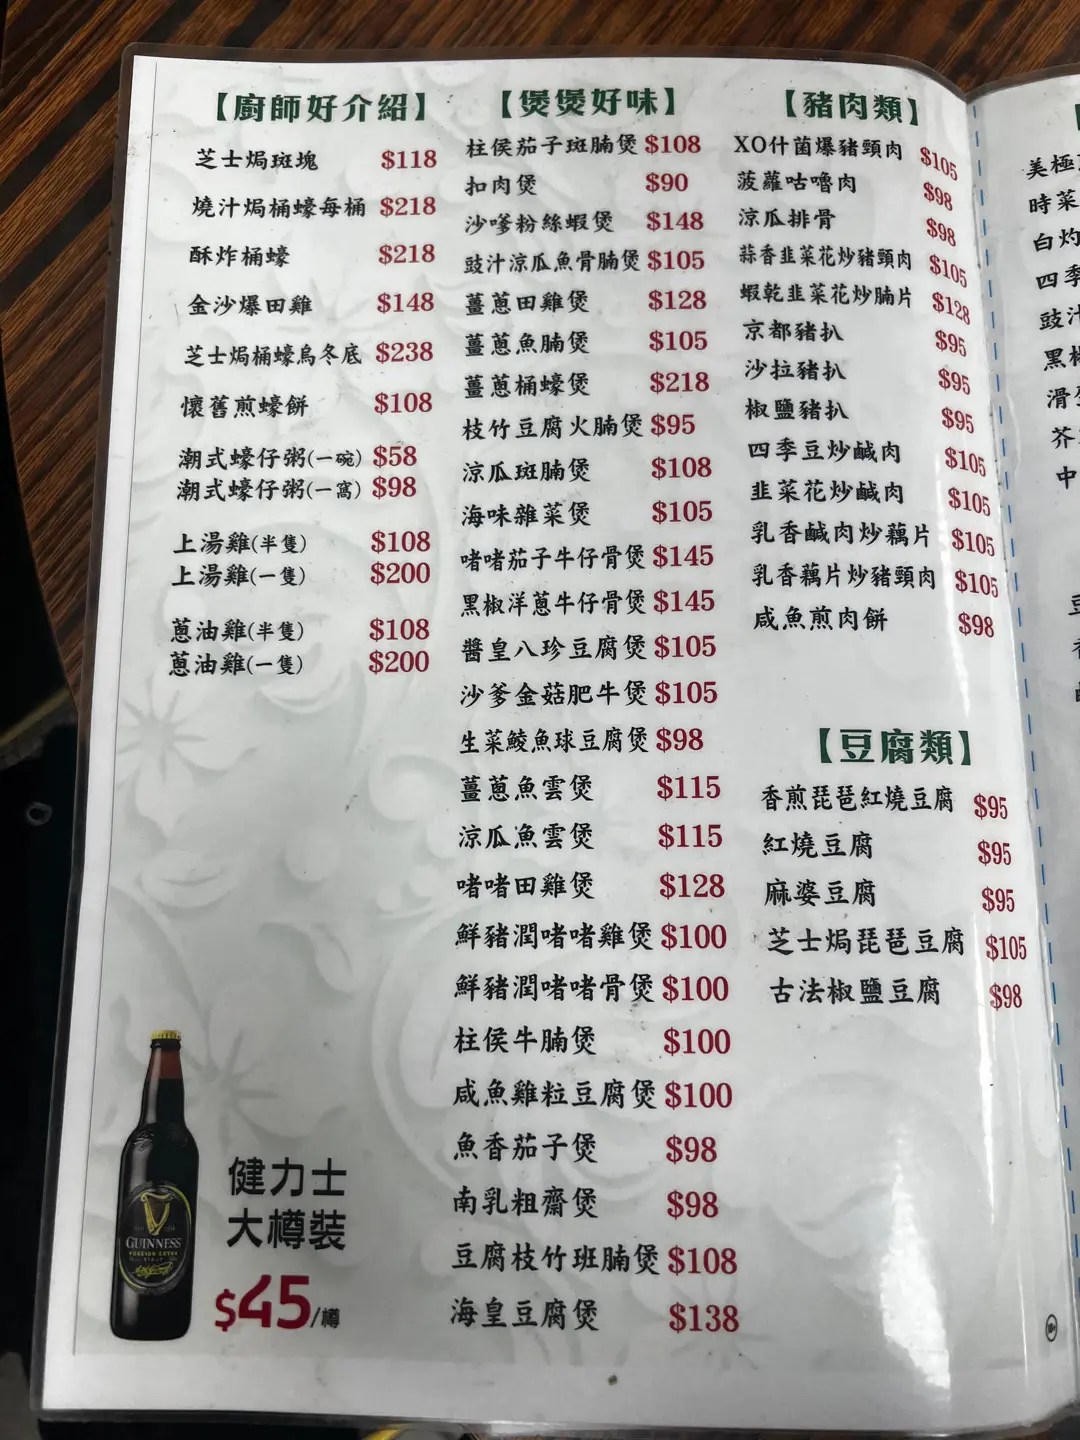 【廚師好介紹】
芝士焗斑塊 $118
燒汁焗桶蠔每桶 $218
酥炸桶蠔 $218
金沙爆田雞 $148
芝士焗桶蠔烏冬底 $238
懷舊煎蠔餅 $108
潮式蠔仔粥(一碗) $58
潮式蠔仔粥(一窩) $98
上湯雞(半隻) $108
上湯雞(一隻) $200
蔥油雞(半隻) $108
蔥油雞(一隻) $200
GUINNESS
FOREIGN EXTRA
STOUT
健力士
大樽裝
$45/樽
【煲煲好味】
柱侯茄子斑腩煲 $108
扣肉煲 $90
沙嗲粉絲蝦煲 $148
豉汁涼瓜魚骨腩煲 $105
薑蔥田雞煲 $128
薑蔥魚腩煲 $105
薑蔥桶蠔煲 $218
枝竹豆腐火腩煲 $95
涼瓜斑腩煲 $108
海味雜菜煲 $105
啫啫茄子牛仔骨煲 $145
黑椒洋蔥牛仔骨煲 $145
醬皇八珍豆腐煲 $105
沙爹金菇肥牛煲 $105
生菜鯪魚球豆腐煲 $98
薑蔥魚雲煲 $115
涼瓜魚雲煲 $115
啫啫田雞煲 $128
鮮豬潤啫啫雞煲 $100
鮮豬潤啫啫骨煲 $100
柱侯牛腩煲 $100
咸魚雞粒豆腐煲 $100
魚香茄子煲 $98
南乳粗齋煲 $98
豆腐枝竹班腩煲 $108
海皇豆腐煲 $138
【豬肉類】
XO什菌爆豬頸肉 $105
菠蘿咕嚕肉 $98
涼瓜排骨 $98
蒜香韭菜花炒豬頸肉 $105
蝦乾韭菜花炒腩片 $128
京都豬扒 $95
沙拉豬扒 $95
椒鹽豬扒 $95
四季豆炒鹹肉 $105
韭菜花炒鹹肉 $105
乳香鹹肉炒藕片 $105
乳香藕片炒豬頸肉 $105
咸魚煎肉餅 $98
【豆腐類】
香煎琵琶紅燒豆腐 $95
紅燒豆腐 $95
麻婆豆腐 $95
芝士焗琵琶豆腐 $105
古法椒鹽豆腐 $98
美極
時菜
白灼
四季
豉汁
黑椒
滑
芥
中